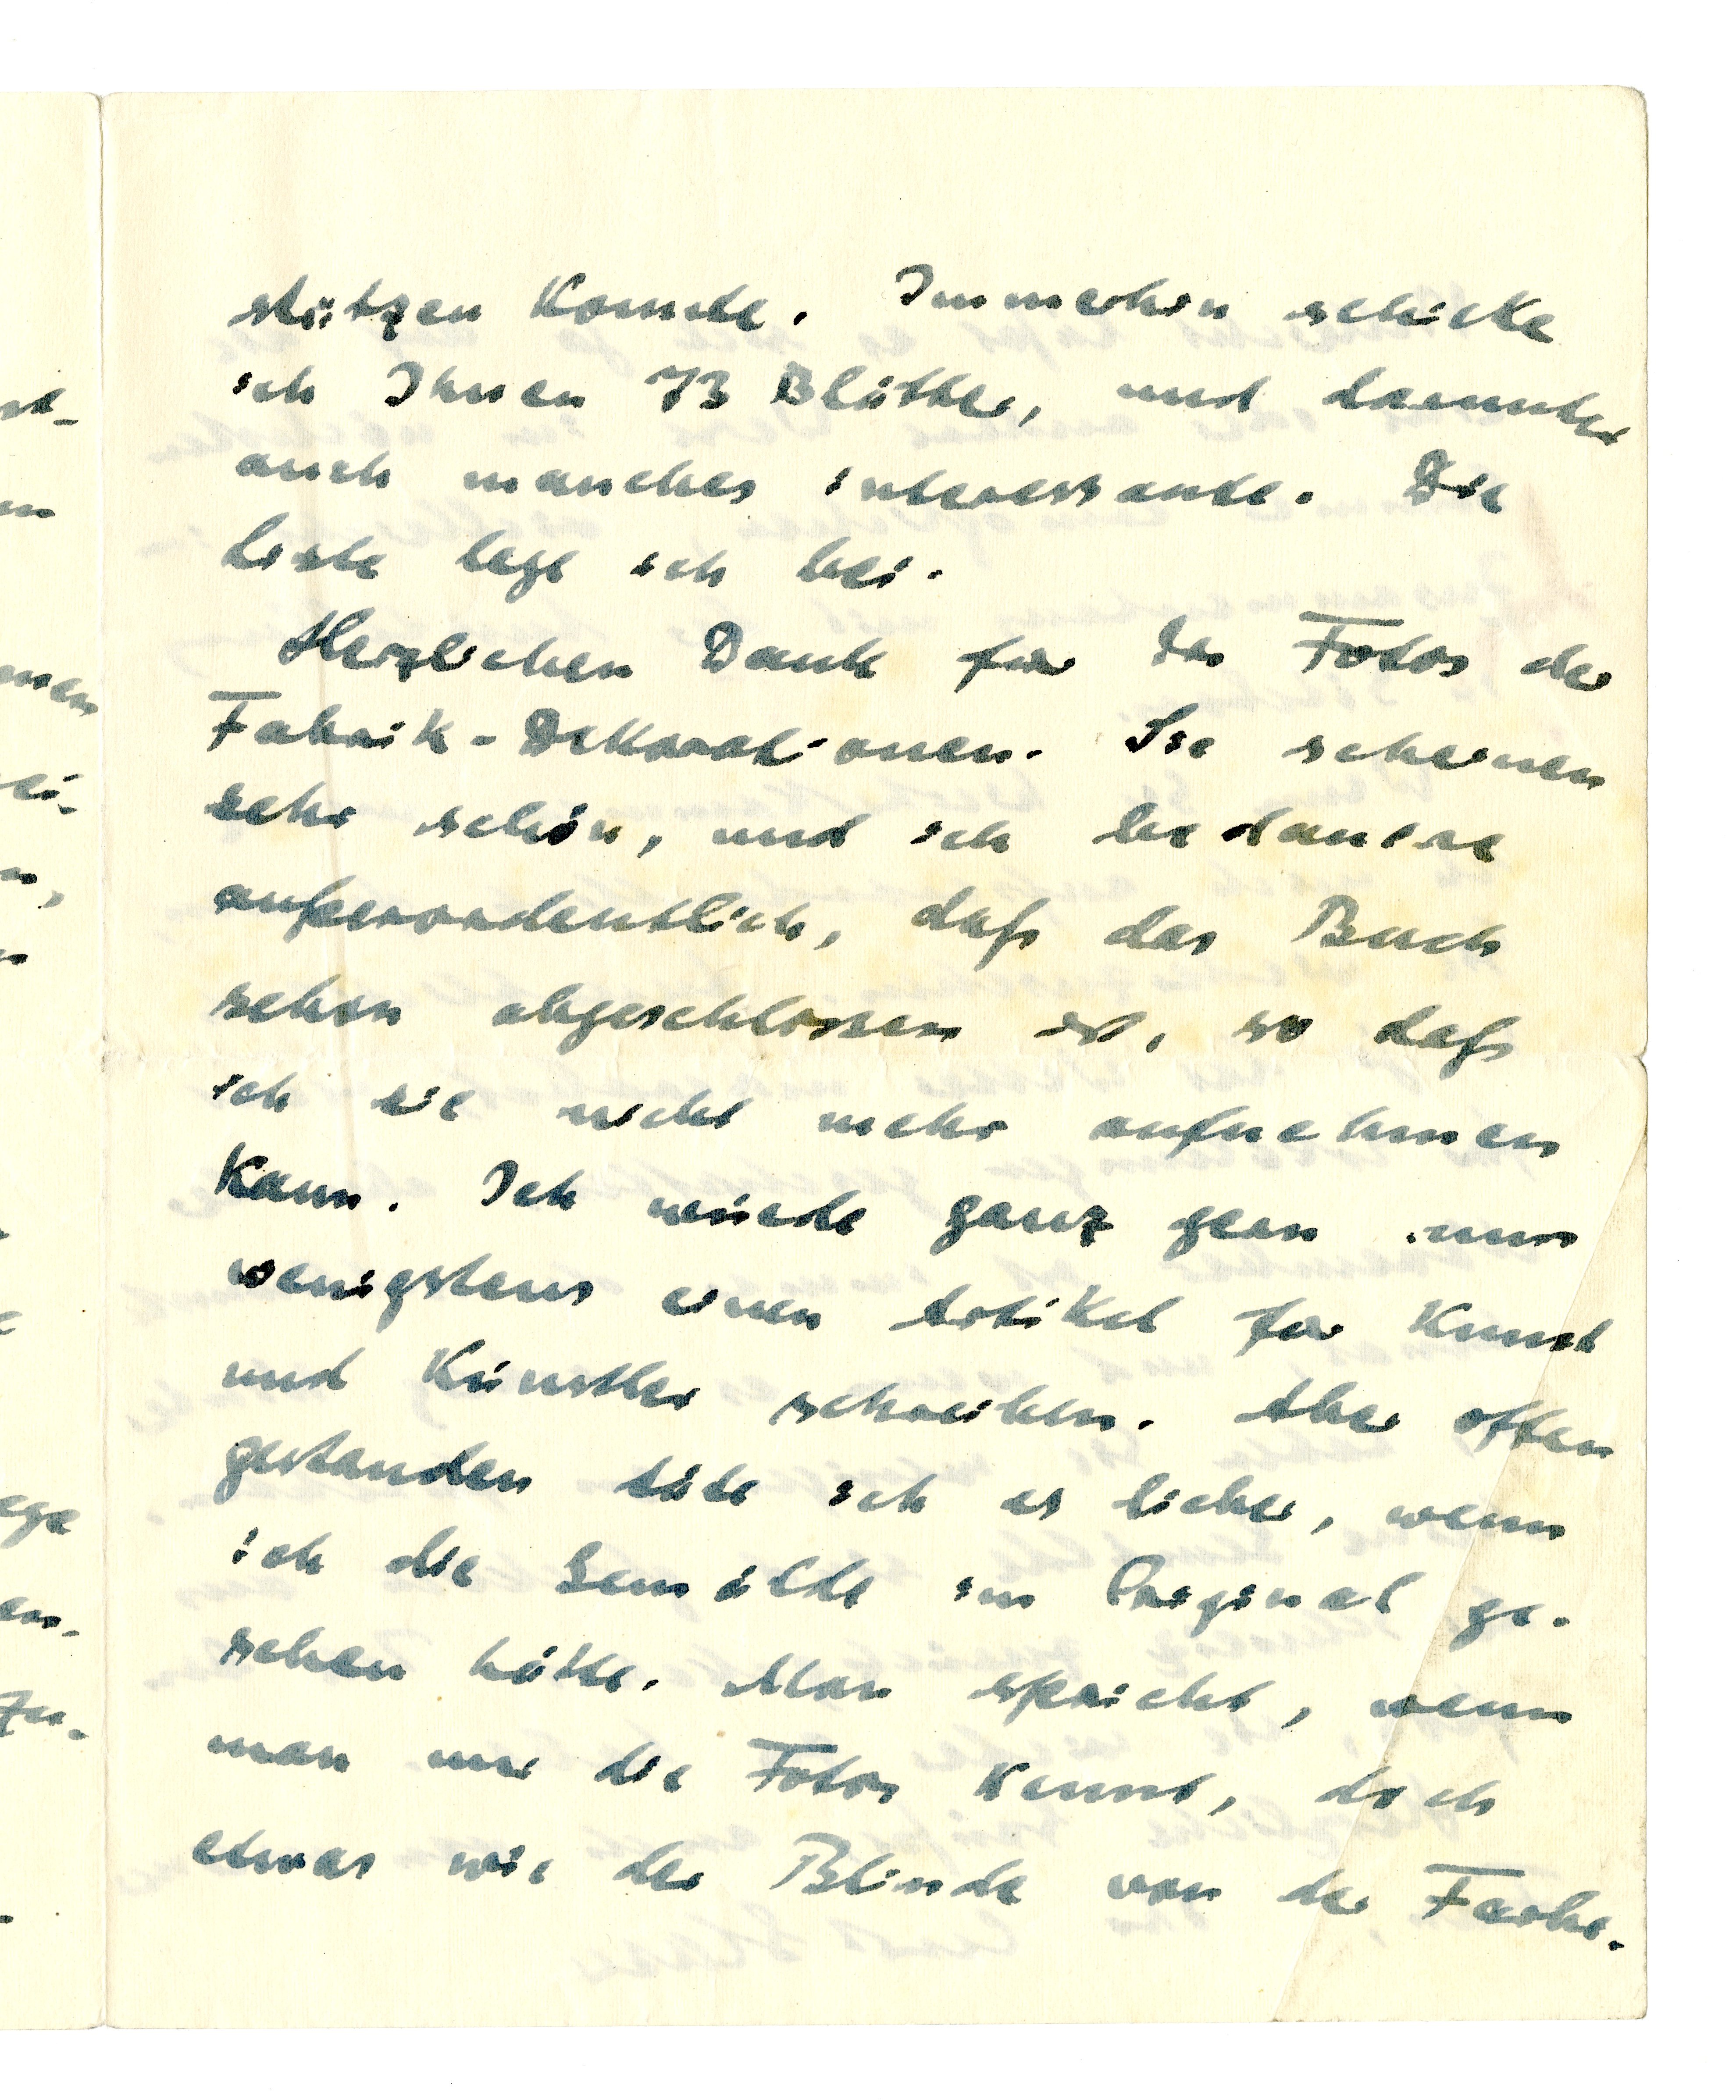 stützen konnte. Immerhin schicke
ich Ihnen 73 Blätter, und darunter
auch manches interessante. Die
Liste lege ich bei.
Herzlichen Dank für die Fotos der
Fabrik-Dekorationen. Sie scheinen
sehr schön, und ich bedauere
außerordentlich, daß das Buch
schon abgeschlossen ist, so daß
ich sie nicht mehr aufnehmen
kann. Ich würde ganz gern nun
wenigstens einen Artikel für Kunst
und Künstler schreiben. Aber offen
gestanden täte ich es lieber, wenn
ich die Gemälde im Original ge-
sehen hätte. Man spricht, wenn
man nur die Fotos kennt, doch
etwas wie der Blinde von der Farbe.